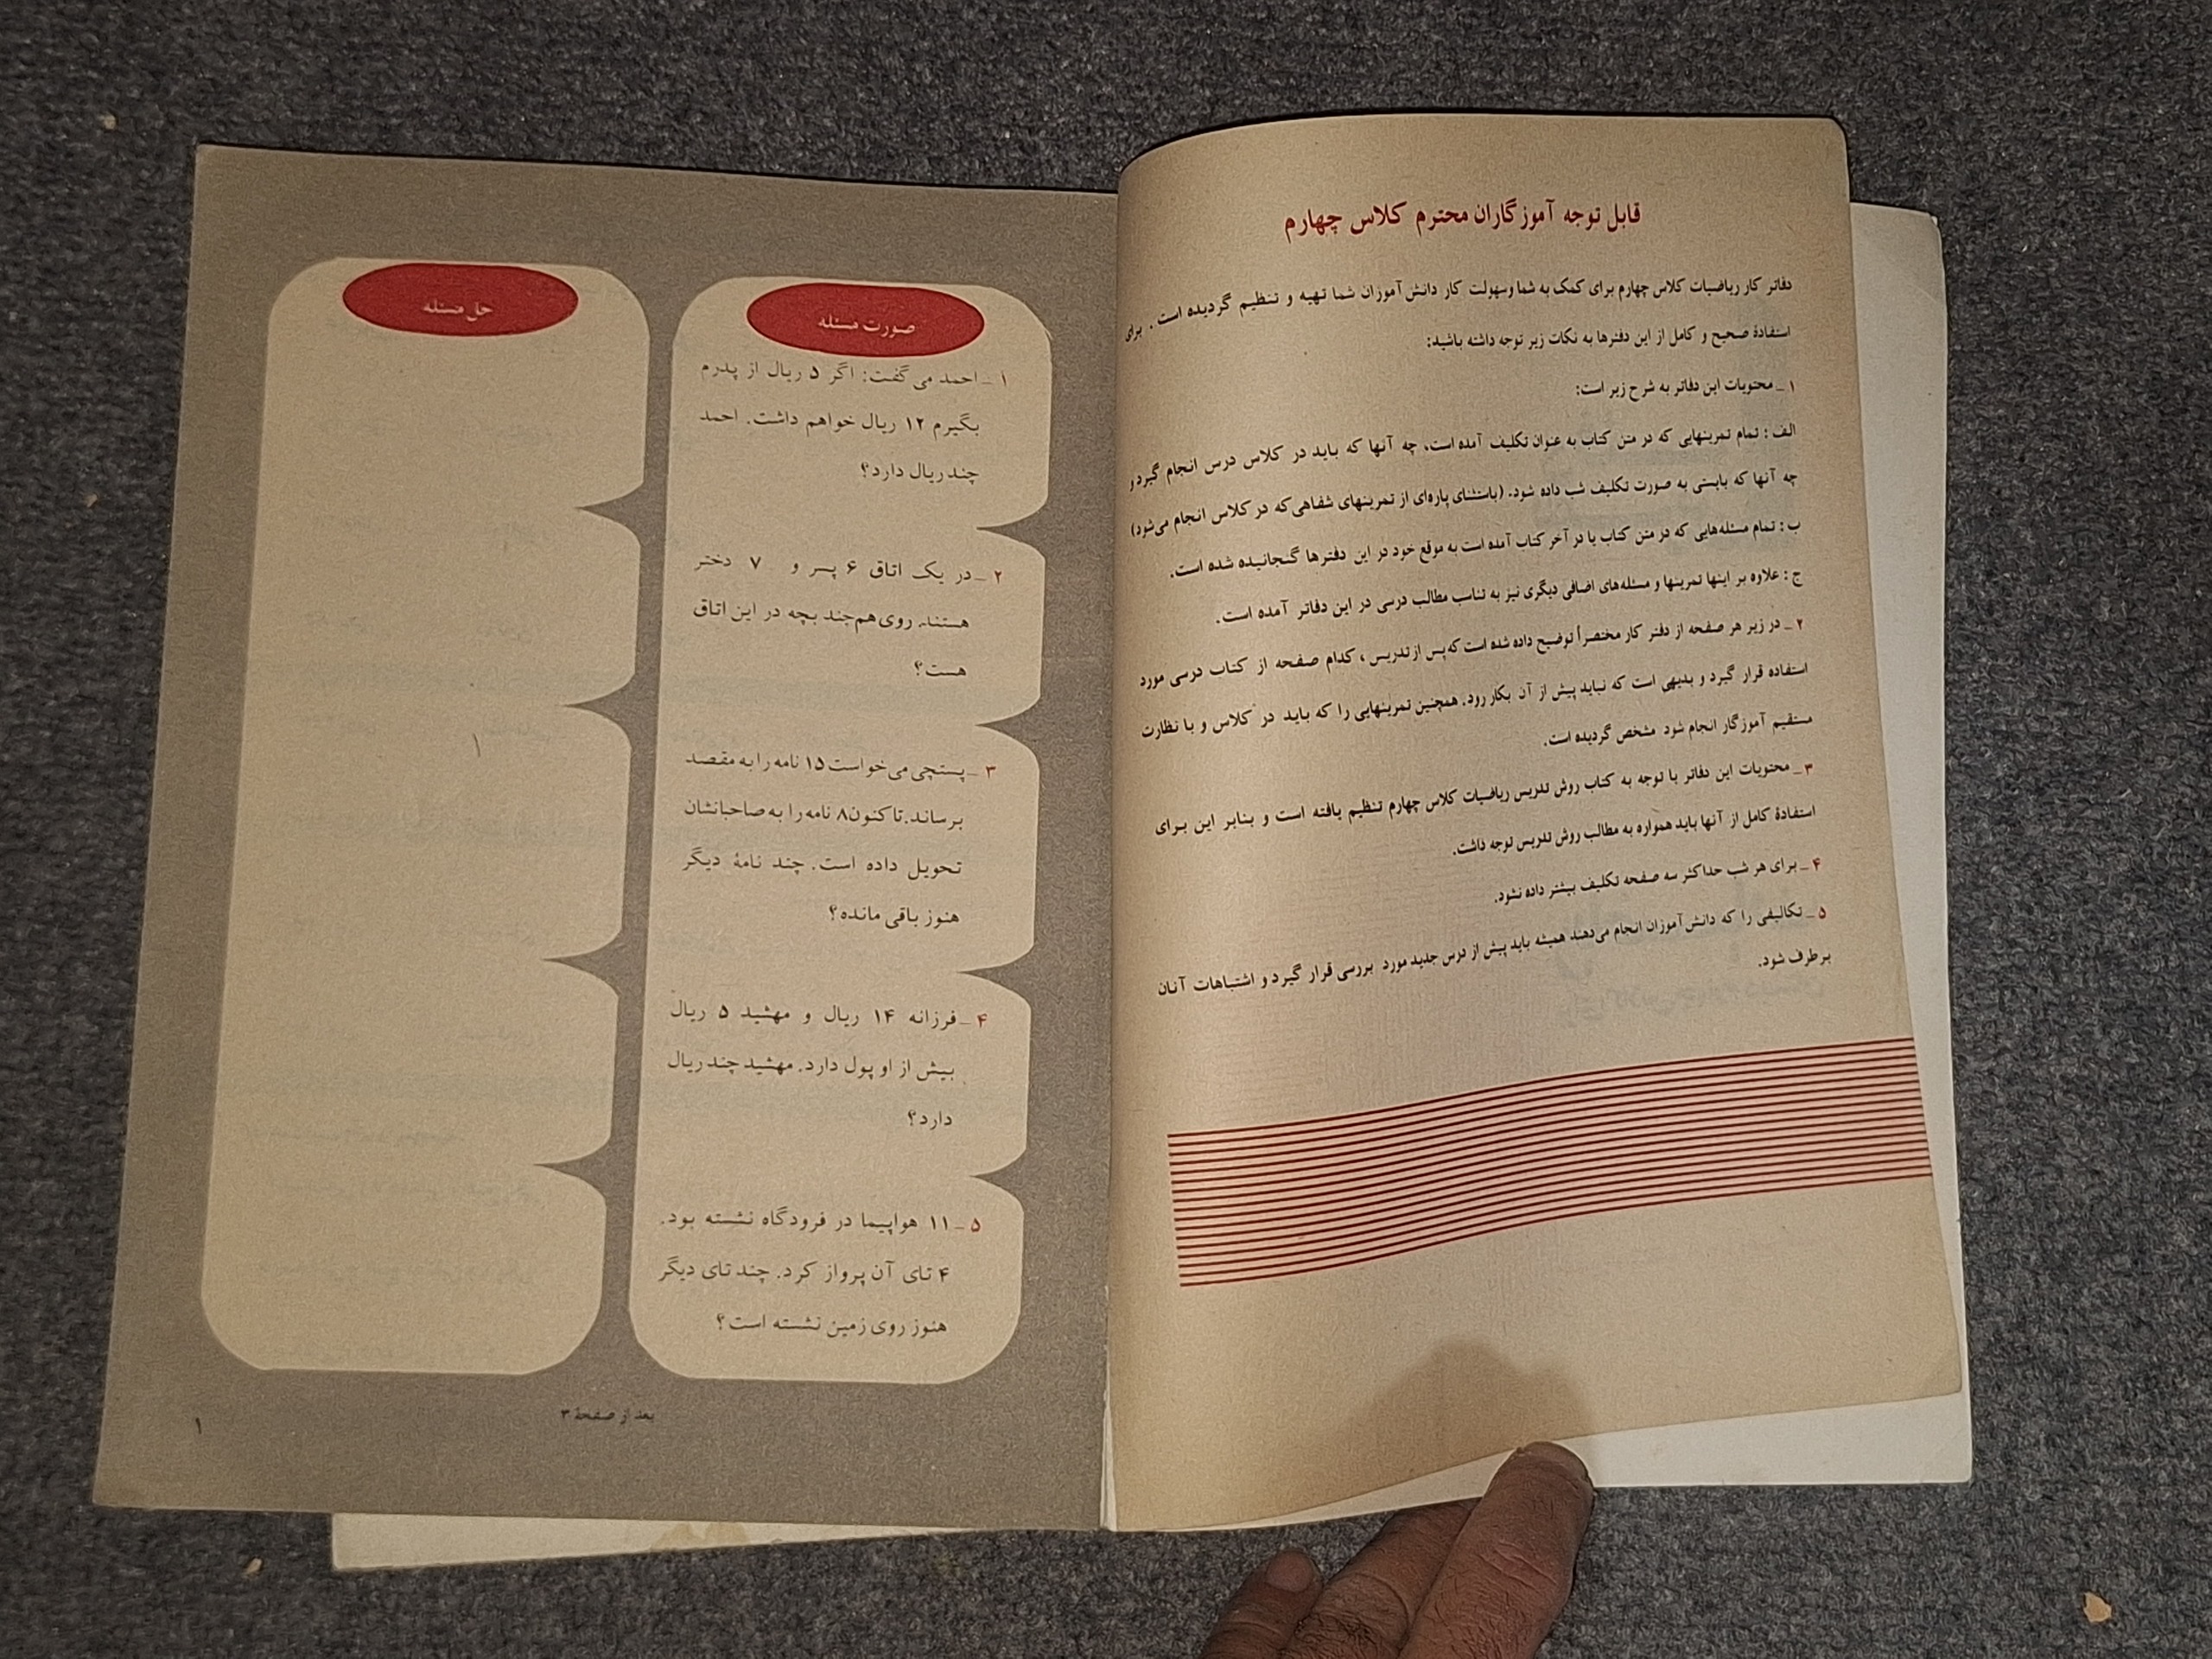 قابل توجه آموزگاران محترم کلاس چهارم
دفاتر کار ریاضیات کلاس چهارم برای کمک به شما وسهولت کار دانش‌آموزان شما تهیه و تنظیم گردیده است. برای
استفادهٔ صحیح و کامل از این دفترها به نکات زیر توجه داشته باشید:
۱ـ محتویات این دفاتر به شرح زیر است:
الف: تمام تمرینهایی که در متن کتاب به عنوان تکلیف آمده است، چه آنها که باید در کلاس درس انجام گیرد و
چه آنها که بایستی به صورت تکلیف شب داده شود. (باستثنای پاره‌ای از تمرینهای شفاهی که در کلاس انجام می‌شود)
ب: تمام مسئله‌هایی که در متن کتاب یا در آخر کتاب آمده است به موقع خود در این دفترها گنجانیده شده است.
ج: علاوه بر اینها تمرینها و مسئله‌های اضافی دیگری نیز به تناسب مطالب درسی در این دفاتر آمده است.
۲ـ در زیر هر صفحه از دفتر کار مختصراً توضیح داده شده است که پس از تدریس، کدام صفحه از کتاب درسی مورد
استفاده قرار گیرد و بدیهی است که نباید پیش از آن بکار رود. همچنین تمرینهایی را که باید در کلاس و با نظارت
مستقیم آموزگار انجام شود مشخص گردیده است.
۳ـ محتویات این دفاتر با توجه به کتاب روش تدریس ریاضیات کلاس چهارم تنظیم یافته است و بنابر این برای
استفادهٔ کامل از آنها باید همواره به مطالب روش تدریس توجه داشت.
۴ـ برای هر شب حداکثر سه صفحه تکلیف بیشتر داده نشود.
۵ـ تکالیفی را که دانش‌آموزان انجام می‌دهند همیشه باید پیش از درس جدید مورد بررسی قرار گیرد و اشتباهات آنان
برطرف شود.
صورت مسئله
۱ـ احمد می‌گفت: اگر ۵ ریال از پدرم
بگیرم ۱۲ ریال خواهم داشت. احمد
چند ریال دارد؟
۲ـ در یک اتاق ۶ پسر و ۷ دختر
هستند. روی هم چند بچه در این اتاق
هست؟
۳ـ پستچی می‌خواست ۱۵ نامه را به مقصد
برساند. تاکنون ۸ نامه را به صاحبانشان
تحویل داده است. چند نامهٔ دیگر
هنوز باقی مانده؟
۴ـ فرزانه ۱۴ ریال و مهشید ۵ ریال
بیش از او پول دارد. مهشید چند ریال
دارد؟
۵ـ ۱۱ هواپیما در فرودگاه نشسته بود.
۴ تای آن پرواز کرد. چند تای دیگر
هنوز روی زمین نشسته است؟
حل مسئله
۱
بعد از صفحهٔ ۳
۱